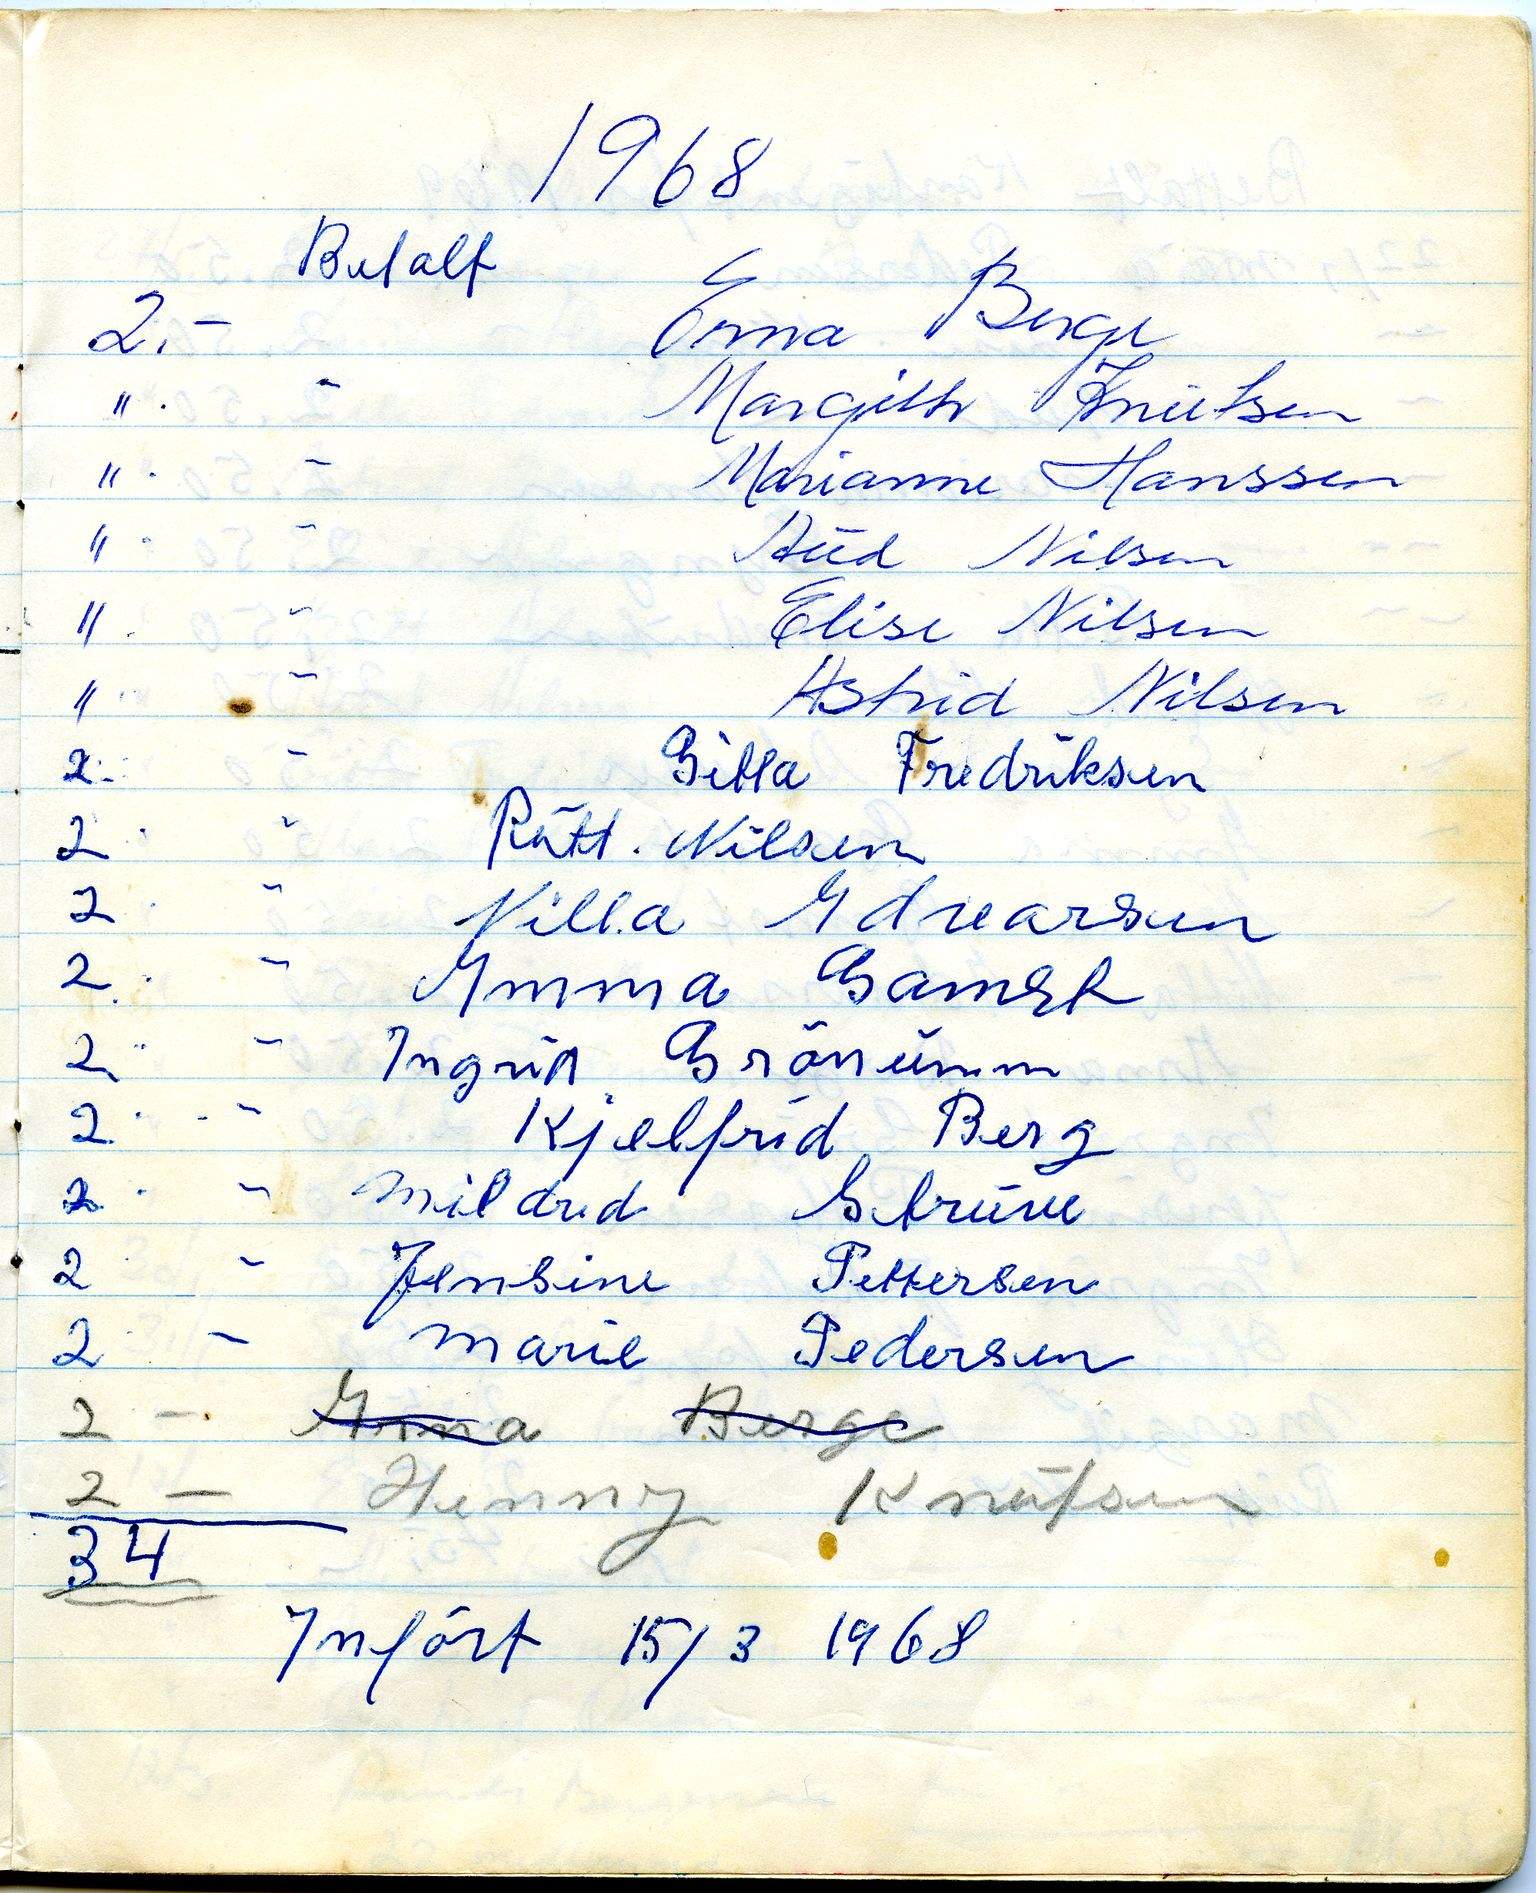 1968
Betalt
2.- Erna Berge
" . - Margith Knutsen
" . - Marianne Hanssen
" . - Aud Nilsen
" . - Elise Nilsen
" - Astrid Nilsen
2 - Gitta Fredriksen
2 " Rutt. Nilsen
2 . " Nilla
2. . " Emma
2 " - Ingrid Grönumm
2 . . - " Kjelfrid Berg
2 . " Mildred Strüve
2 - Jensine Pettersen
2 - Marie Pedersen
2 - Erna Berge
2 - Henny Knutsen
34
Infört 15/3 1968